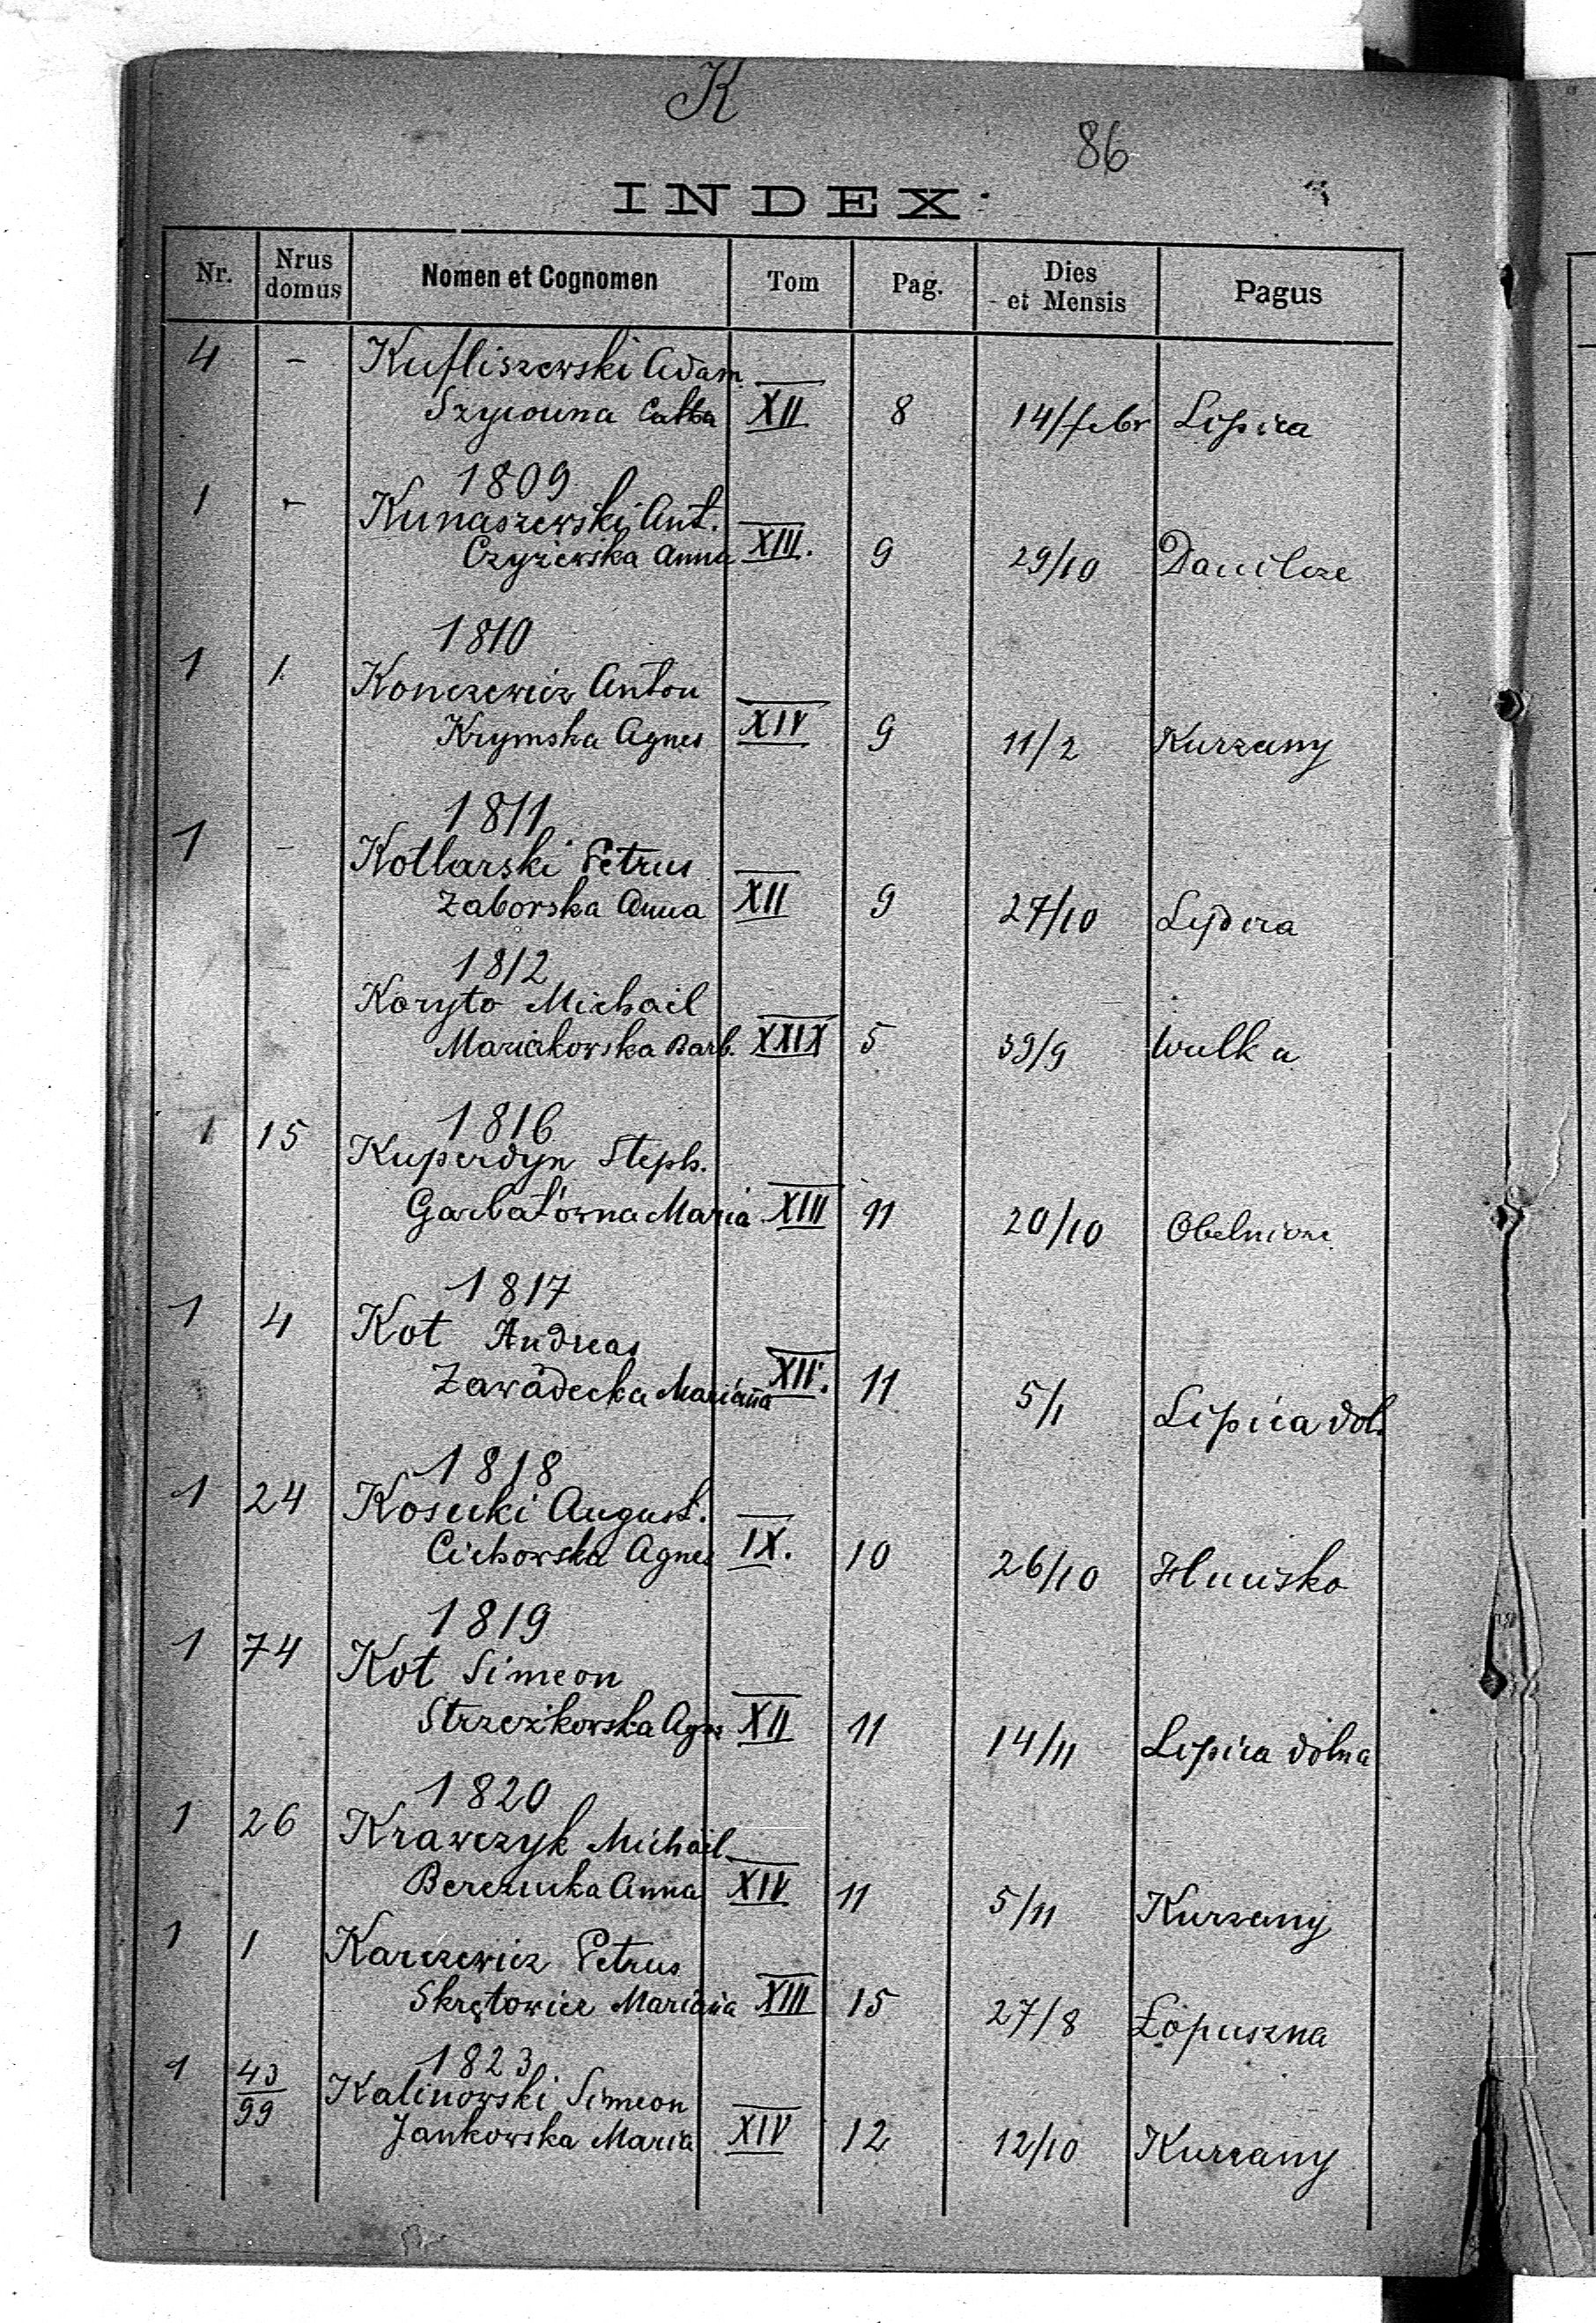 K
86
INDEX
Nr. Nrus domus Nomen et Cognomen Tom Pag. Dies et Mensis Pagus
4 - Kufliszewski Adam
Szycowna Catha XII 8 14/febr Lipica
1809
1 - Kunaszewski Ant.
Czyżewska Anna XIII. 9 29/10 Danilcze
1810
1 1 Konczewicz Anton
Krymska Agnes XIV 9 11/2 Kurzany
1811
1 - Kotlarski Petrus
Zaborska Anna XII 9 27/10 Lipica
1812
Koryto Michail
Mariakowska Barb. XXIX 5 39/9 Wulka
1816
1 15 Kuperdyn Steph.
Garbatówna Maria XIII 11 20/10 Obelnice
1817
1 4 Kot Andreas
Zawadecka Marianna XII. 11 5/1 Lipica dol.
1818
1 24 Kosucki August.
Cichowska Agnes IX. 10 26/10 Hucisko
1819
1 74 Kot Simeon
Strzezkowska Agn XII 11 14/11 Lipica dolna
1820
1 26 Krawczyk Michail
Berezucka Anna XIV 11 5/11 Kurzany
1 1 Karczewicz Petrus
Skrętowicz Marianna XIII 15 27/8 Łopuszna
1823
1 43/99 Kalinowski Simeon
Jankowska Maria XIV 12 12/10 Kurzany